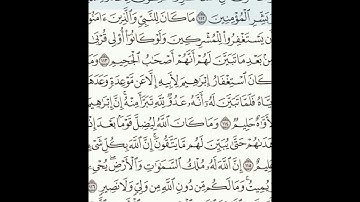 وَبَشِّرِ ٱلْمُؤْمِنِينَ ١١٢ مَا كَانَ لِلنَّبِيِّ وَٱلَّذِينَ ءَامَنُوٓا۟
أَن يَسْتَغْفِرُوا۟ لِلْمُشْرِكِينَ وَلَوْ كَانُوٓا۟ أُو۟لِى قُرْبَىٰ
مِنۢ بَعْدِ مَا تَبَيَّنَ لَهُمْ أَنَّهُمْ أَصْحَٰبُ ٱلْجَحِيمِ ١١٣
كَانَ ٱسْتِغْفَارُ إِبْرَٰهِيمَ لِأَبِيهِ إِلَّا عَن مَّوْعِدَةٍ وَعَدَهَآ
إِيَّاهُ فَلَمَّا تَبَيَّنَ لَهُۥٓ أَنَّهُۥ عَدُوٌّ لِّلَّهِ تَبَرَّأَ مِنْهُ إِنَّ إِبْرَٰهِيمَ
لَأَوَّٰهٌ حَلِيمٌ ١١٤ وَمَا كَانَ ٱللَّهُ لِيُضِلَّ قَوْمًۢا بَعْدَ إِذْ
هَدَىٰهُمْ حَتَّىٰ يُبَيِّنَ لَهُم مَّا يَتَّقُونَ إِنَّ ٱللَّهَ بِكُلِّ شَىْءٍ
عَلِيمٌ ١١٥ إِنَّ ٱللَّهَ لَهُۥ مُلْكُ ٱلسَّمَٰوَٰتِ وَٱلْأَرْضِ يُحْىِۦ
وَيُمِيتُ وَمَا لَكُم مِّن دُونِ ٱللَّهِ مِن وَلِىٍّ وَلَا نَصِيرٍ ١١٦